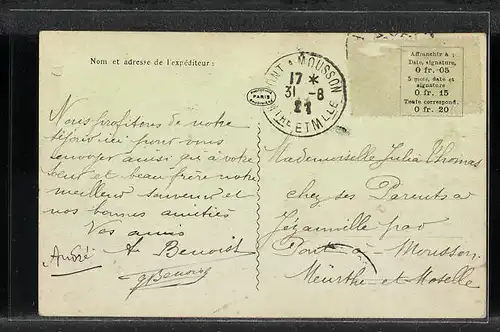 Nom et adresse de l'expéditeur :
PONT A MOUSSON
17 *
31 -8
27
MTHE ET MLLE
PARIS
Affranchir à :
Date, signature,
0 fr. 05
5 mots, date et
signature
0 fr. 15
Toute correspond.
0 fr. 20
Nous profitons de notre
séjour ici pour vous
envoyer ainsi qu'à votre
sœur et beau frère notre
meilleur souvenir et
nos bonnes amitiés
Vos amis
André A Benoist
Benoist
Mademoiselle Julia Thomas
chez ses Parents à
Jezainville par
Pont-à-Mousson
Meurthe-et-Moselle